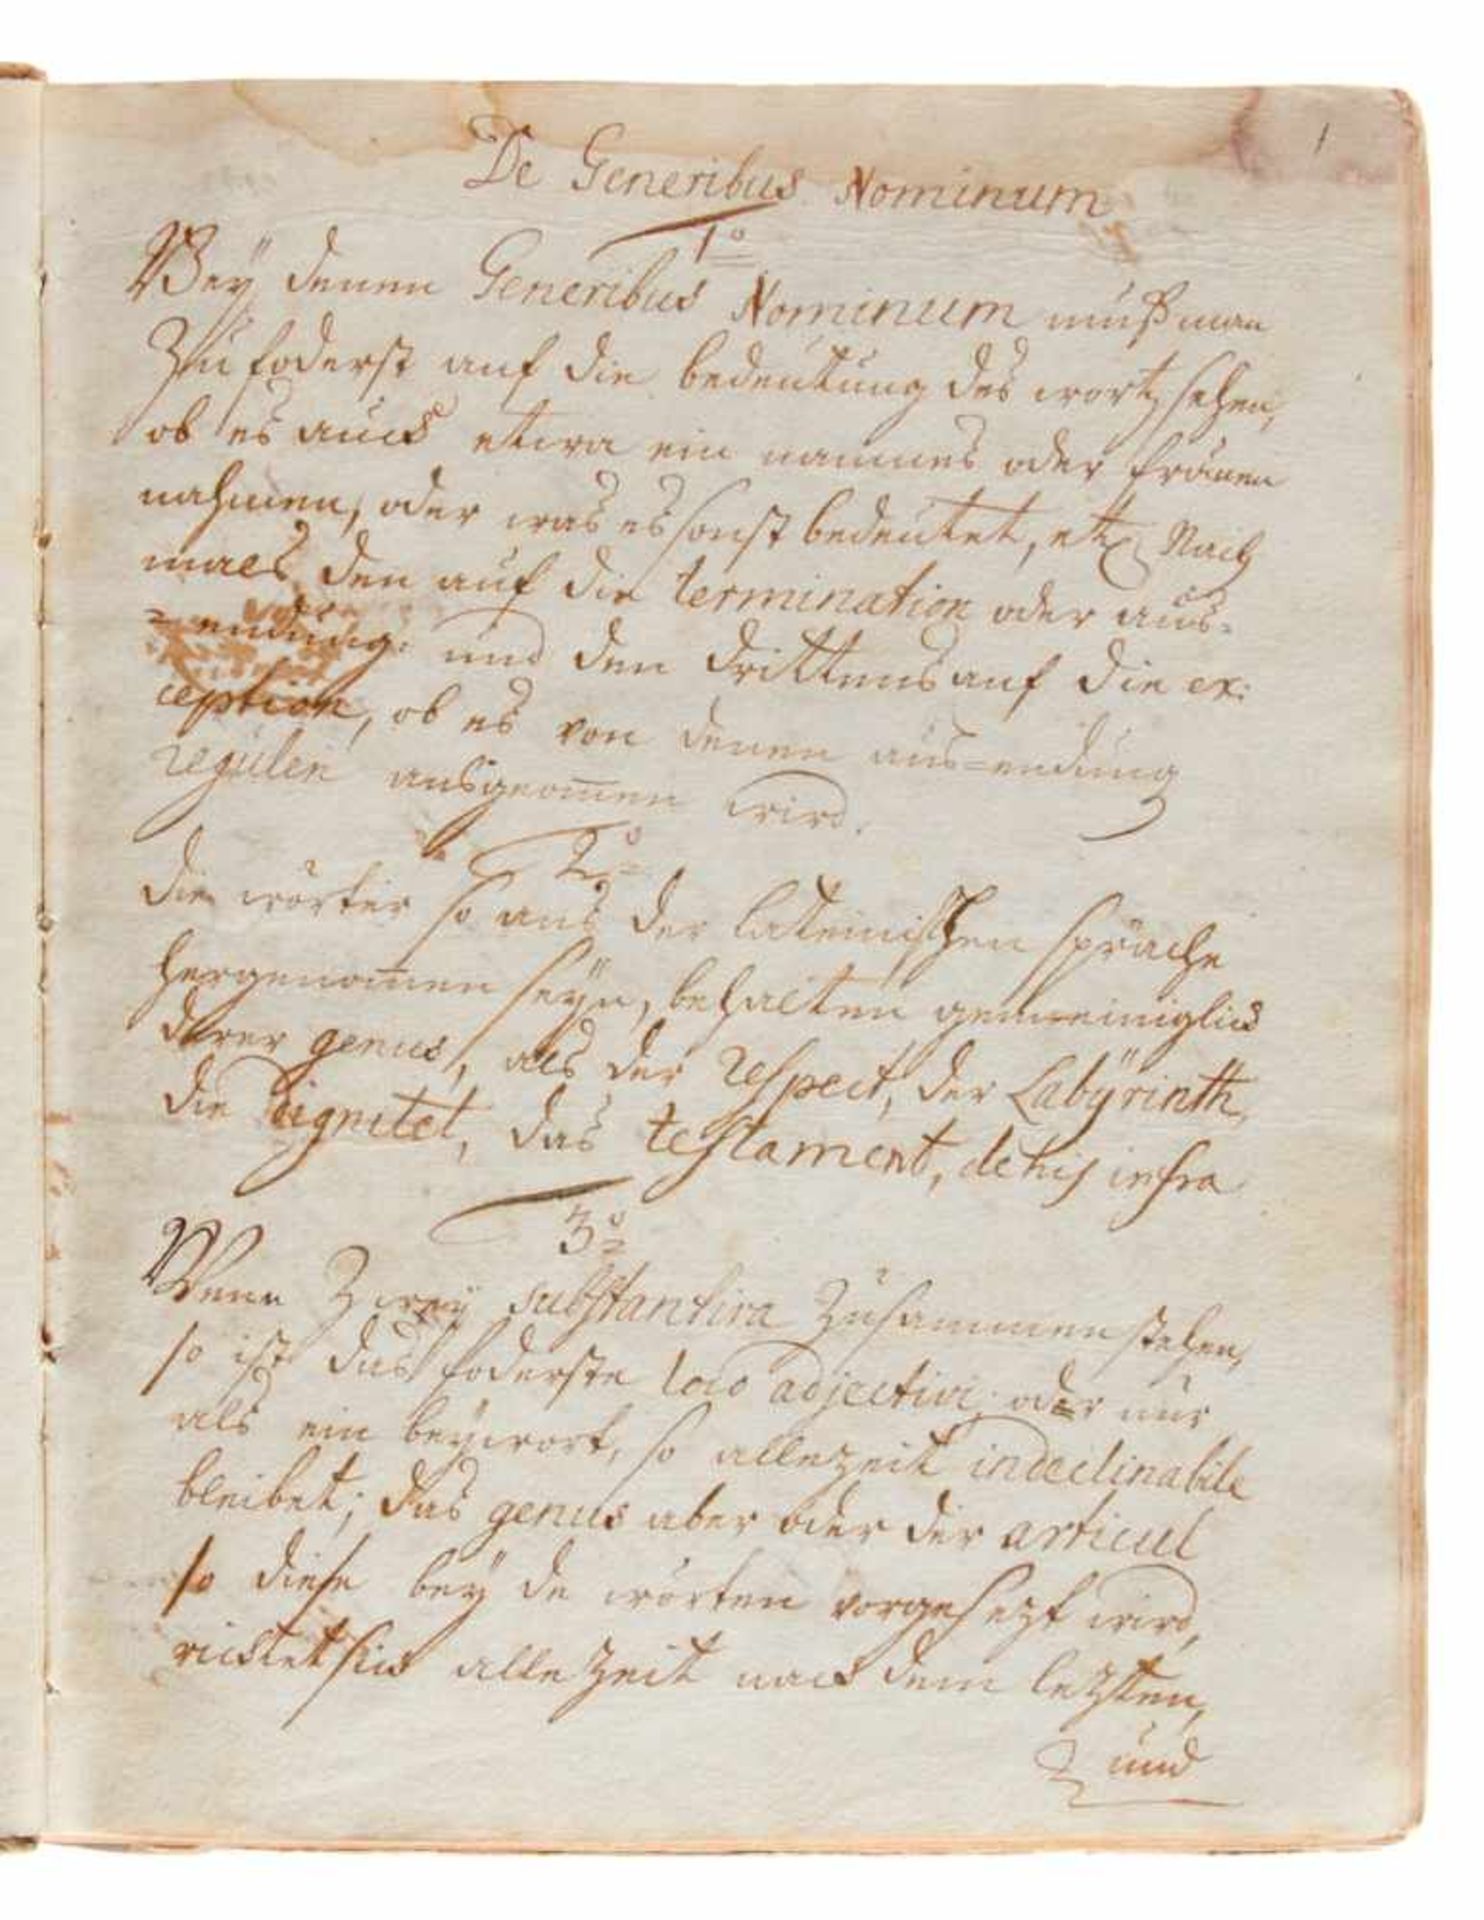 1
De Generibus Nominum
1º
Bey denen Generibus Nominum muß man
Zufoderst auf die bedeutung des worts sehen,
ob es auch etwa ein mannes oder frauen
nahmen, oder was es sonst bedeutet, etc. Nach
mals den auf die termination oder aus=
=endung: und den drittens auf die ex:
ception, ob es von denen aus=endung
regulen ausgenomen wird.
2º
die wörter so aus der lateinischen sprache
hergenomen seÿn, behalten gemeiniglich
derer genus, als der respect, der Labÿrinth,
die dignitet, das testament, de his infra
3º
Wenn Zweÿ substantiva Zusammen stehen,
so ist das foderste loco adjectivi oder nur
als ein beÿwort, so allezeit indeclinabile
bleibet; das genus aber oder der articul
so diese beÿde wörten vorgesezt wird,
richtet sich alle Zeit nach dem lezten,
und